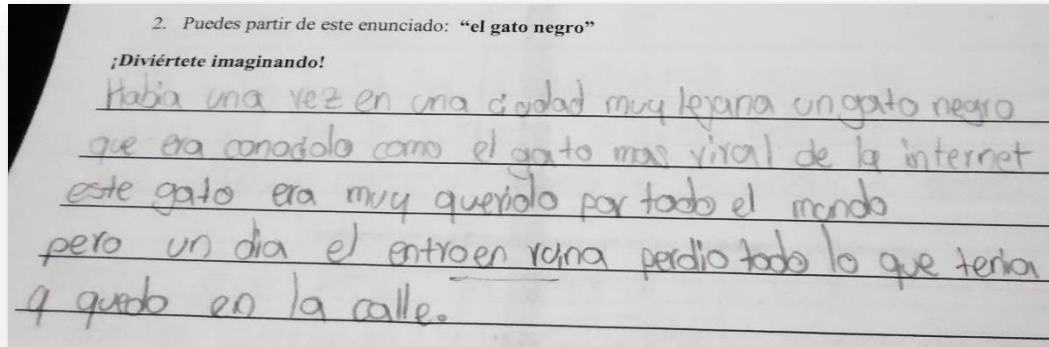 2. Puedes partir de este enunciado: “el gato negro”
¡Diviértete imaginando!
Habia una vez en una ciudad muy lejana un gato negro
que era conocido como el gato mas viral de la internet
este gato era muy querido por todo el mundo
pero un dia el entro en ruina perdio todo lo que tenia
y quedo en la calle.